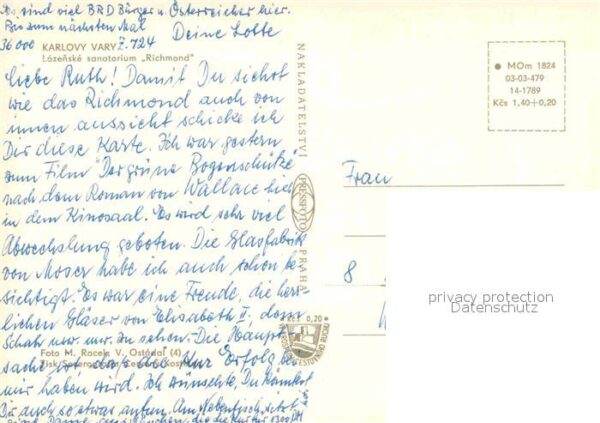 Es sind viel BRD Bürger u. Österreicher hier.
Bis zum nächsten Mal
Deine Lotte
36000 KARLOVY VARY Z. 724
Lázeňské sanatorium „Richmond"
Liebe Ruth! Damit Du siehst
wie das Richmond auch von
innen aussieht schicke ich
Dir diese Karte. Ich war gestern
zum Film "Der grüne Bogenschütze"
nach dem Roman von Wallace hier
in dem Kinosaal. Es wird sehr viel
Abwechslung geboten. Die Glasfabrik
von Moser habe ich auch schon be
sichtigt. Es war eine Freude, die herr
lichen Gläser von Elisabeth II, dem
Schah usw. usw. zu sehen. Die Haupt
sache ist daß die Kur Erfolg bei
mir haben wird. Ich wünschte, Du könntest
Dir auch so etwas antun. Am Nebentisch sitzt
eine Dame aus München, die die Kur für 1300 DM
Foto M. Racek, V. Ostádal (4)
NAKLADATELSTVÍ
PRESSFOTO
PRAHA
Kčs 0,20
MOm 1824
03-03-479
14-1789
Kčs 1,40+0,20
Frau
8
privacy protection
Datenschutz